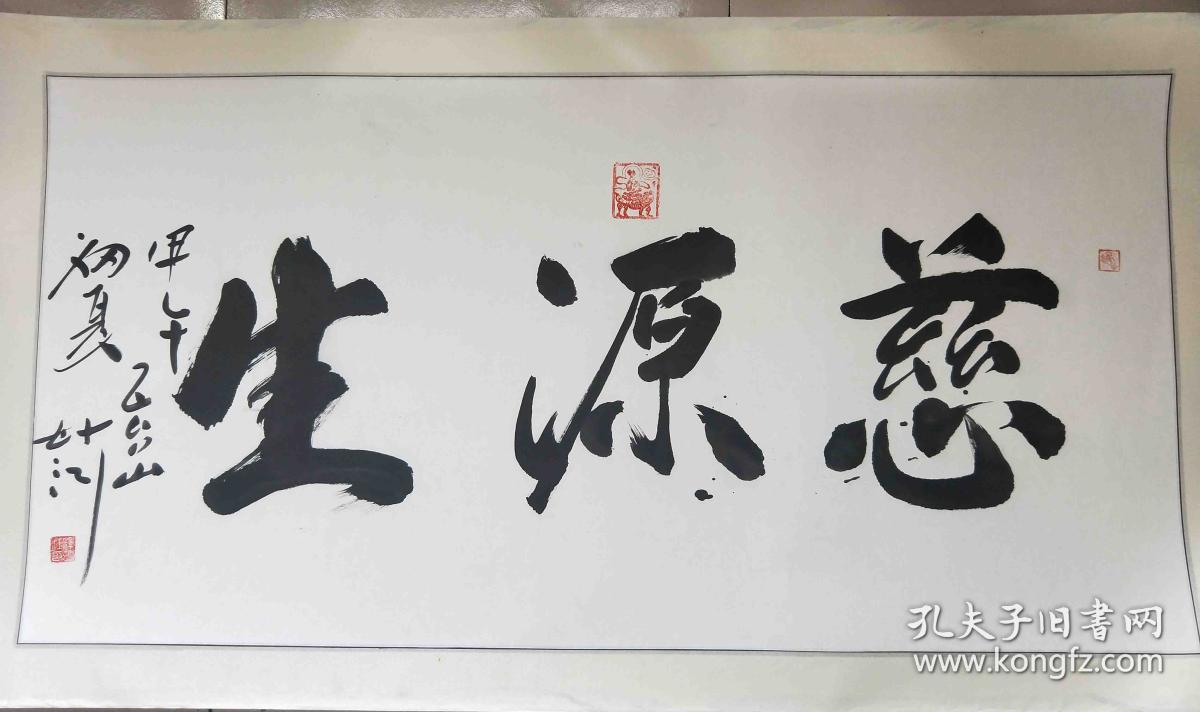 慈源生
甲午
初夏
五台山
妙江
孔夫子旧书网
www.kongfz.com